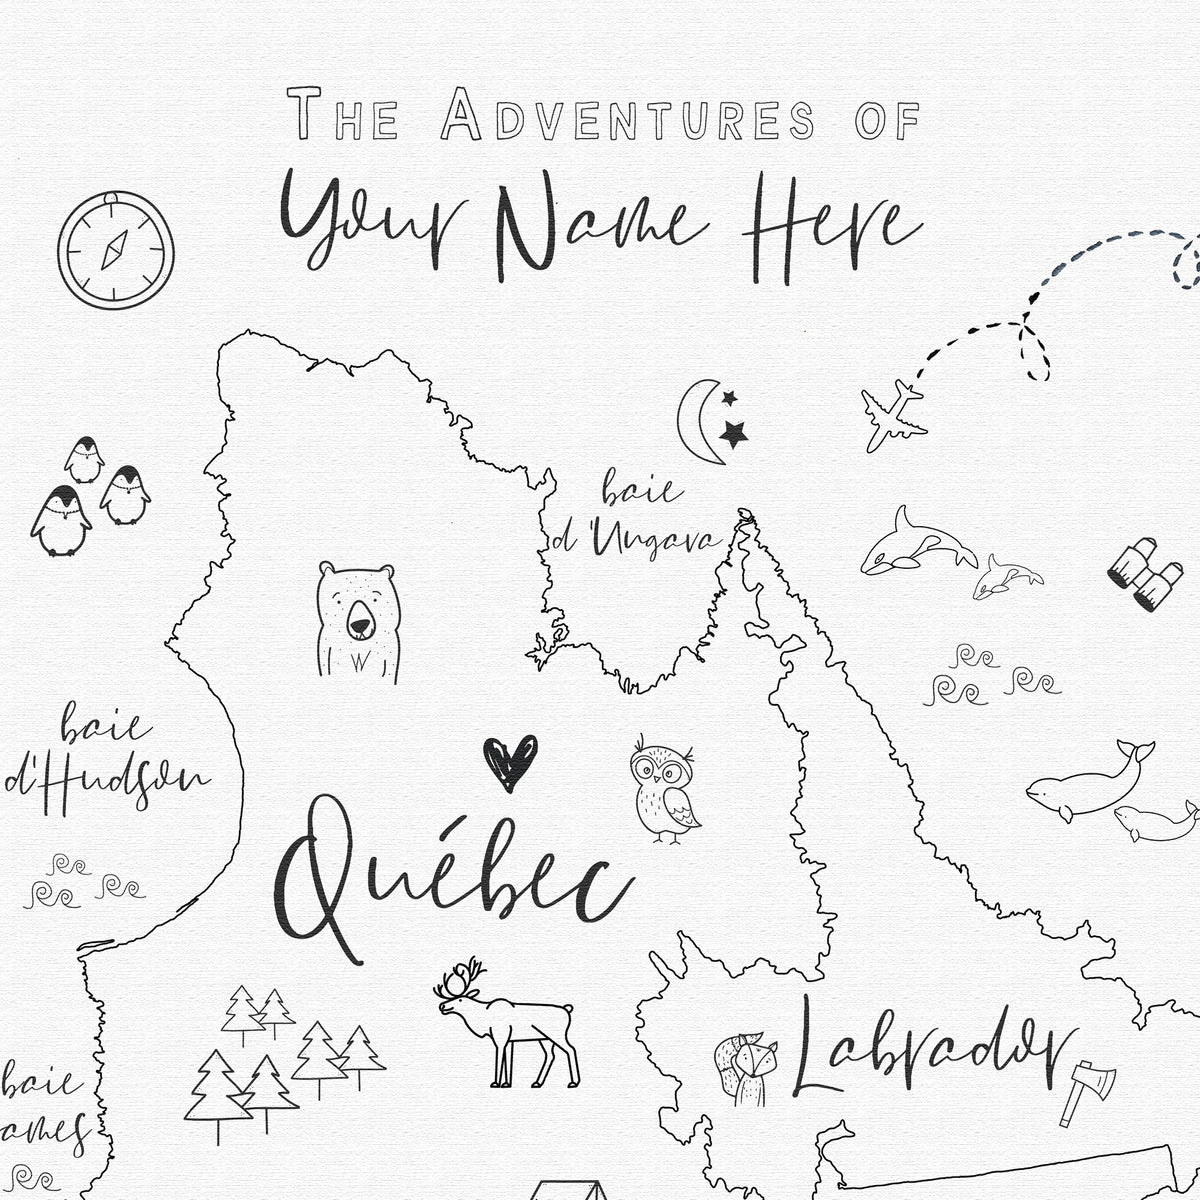 The Adventures of
Your Name Here
baie
d'Ungava
baie
d'Hudson
Québec
Labrador
baie
ames